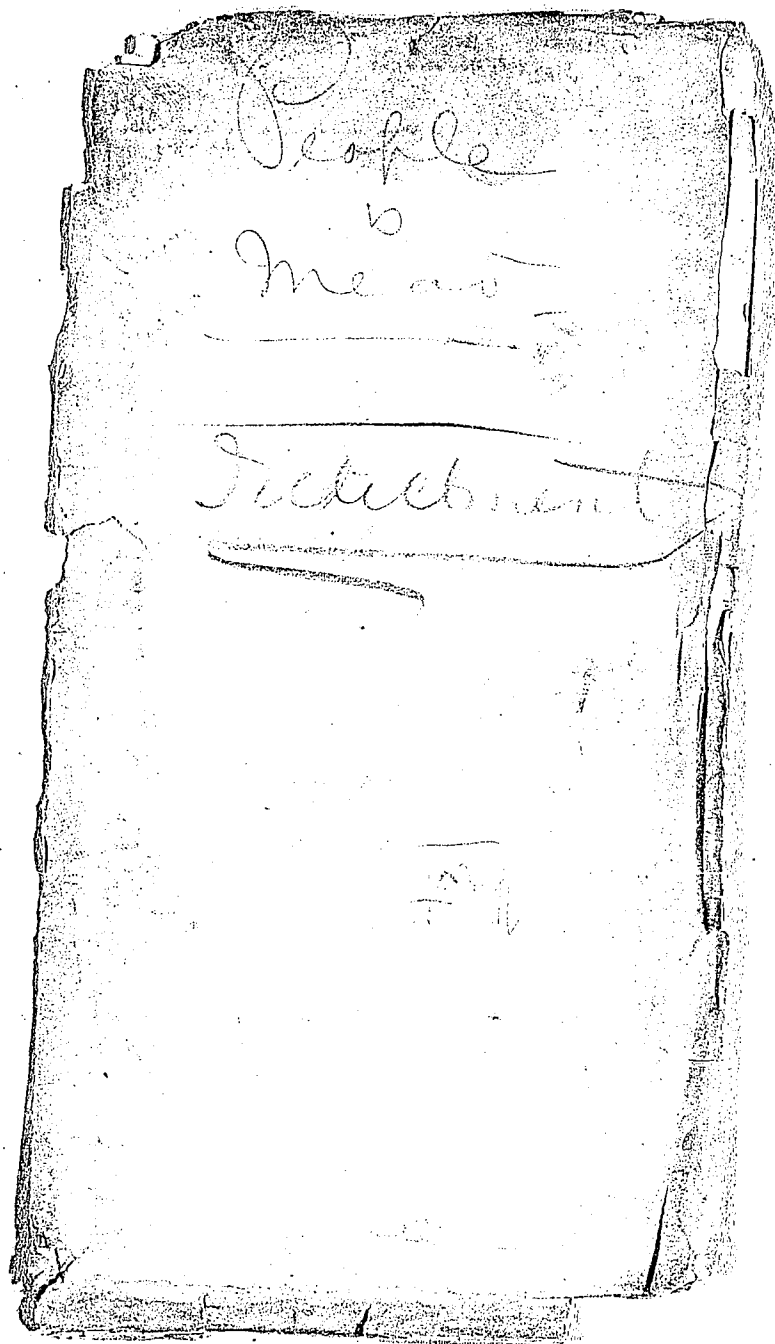 People
v
Mead
Indictment